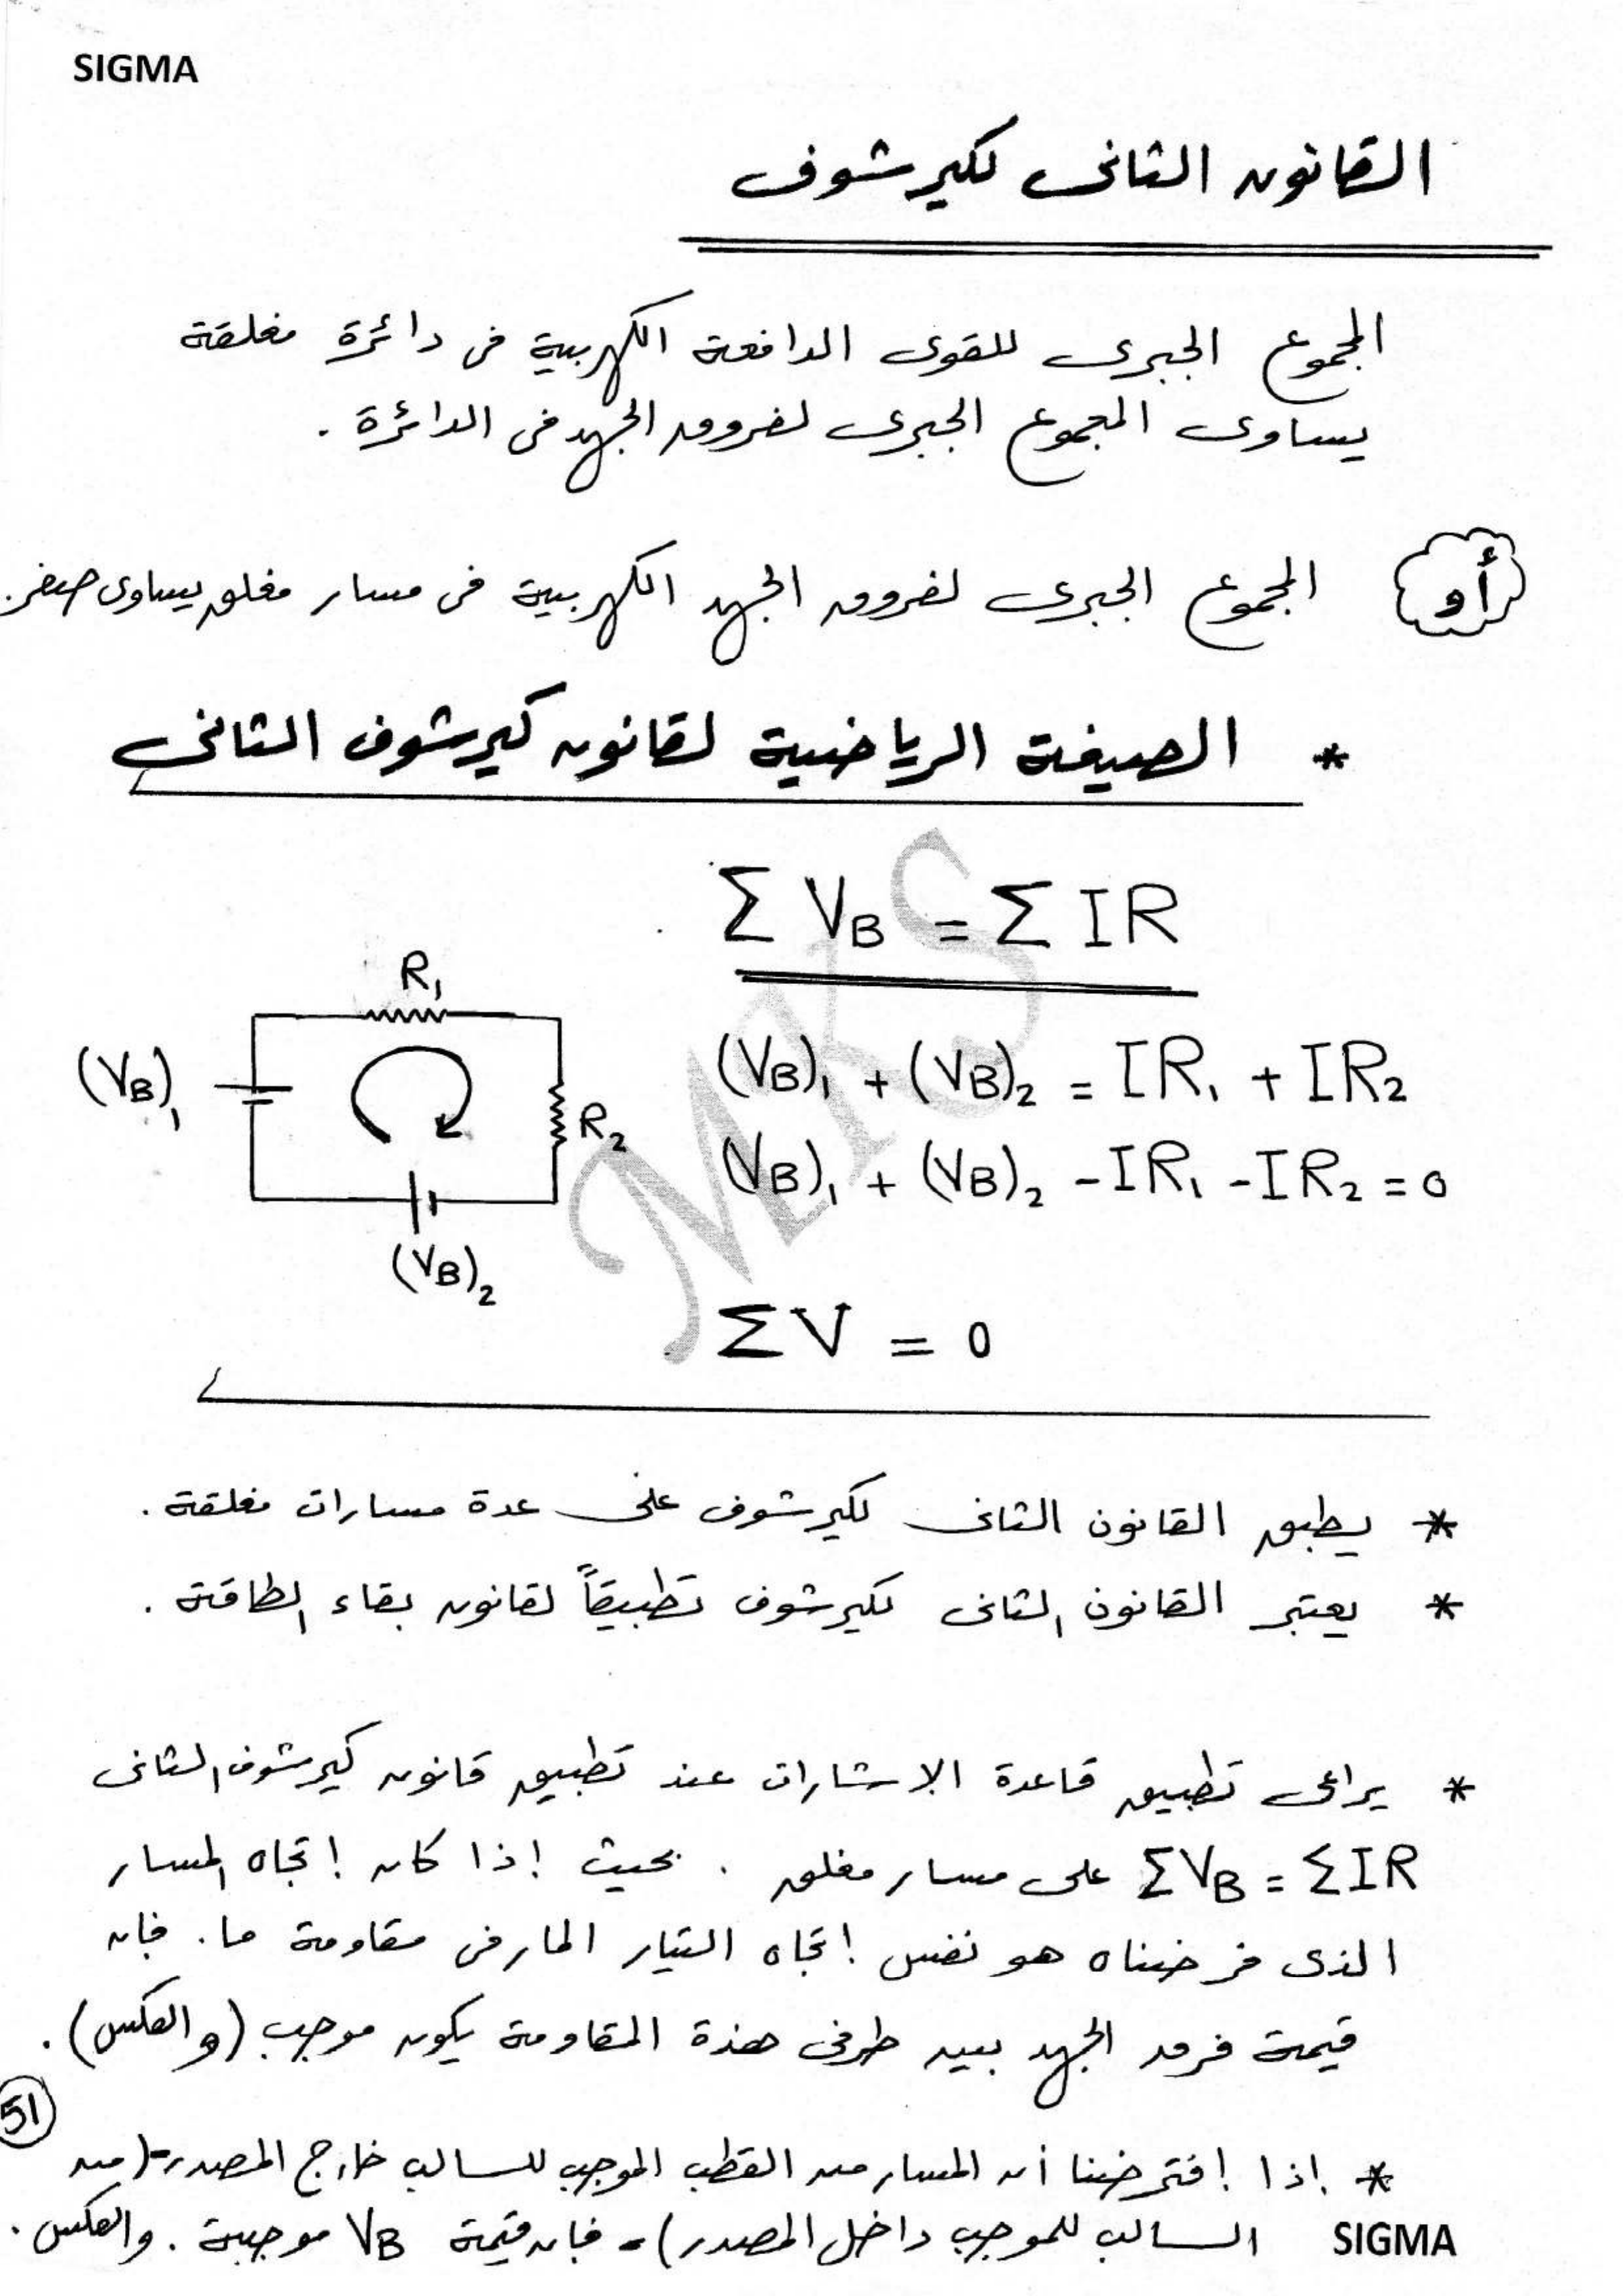 SIGMA
القانون الثانى لكيرشوف
المجموع الجبرى للقوى الدافعة الكهربية فى دائرة مغلقة
يساوى المجموع الجبرى لفروق الجهد فى الدائرة .
أو
المجموع الجبرى لفروق الجهد الكهربية فى مسار مغلق يساوى صفر.
* الصيغة الرياضية لقانون كيرشوف الثانى
Σ V_B = Σ IR
R₁
(V_B)₁
R₂
(V_B)₂
(V_B)₁ + (V_B)₂ = IR₁ + IR₂
(V_B)₁ + (V_B)₂ - IR₁ - IR₂ = 0
ΣV = 0
MKS
* يطبق القانون الثانى لكيرشوف على عدة مسارات مغلقة .
* يعتبر القانون الثانى لكيرشوف تطبيقاً لقانون بقاء الطاقة .
* يراعى تطبيق قاعدة الإشارات عند تطبيق قانون كيرشوف الثانى
ΣV_B = ΣIR على مسار مغلق . بحيث إذا كان إتجاه المسار
الذى فرضناه هو نفس إتجاه التيار المار فى مقاومة ما . فإن
قيمة فرق الجهد بين طرفى هذة المقاومة يكون موجب (والعكس) .
51
* إذا إفترضنا أن المسار من القطب الموجب للسالب خارج المصدر - (من
السالب للموجب داخل المصدر) - فإن قيمة V_B موجبة . والعكس .
SIGMA